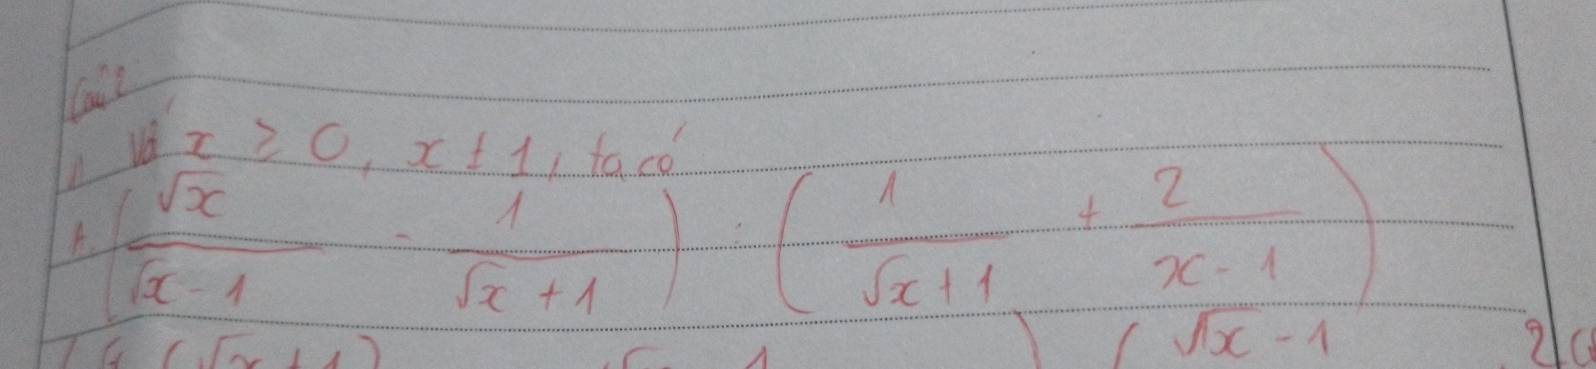 Câu 2
1) Với x ≥ 0, x ± 1, ta có
A = ( √x / (√x - 1) - 1 / (√x + 1) ) : ( 1 / (√x + 1) + 2 / (x - 1) )
(√x + 1) 1 ) ( √x - 1 2